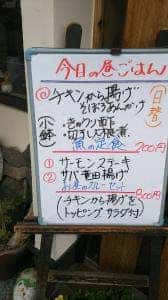 今日の昼ごはん
日替
@チキンから揚げ
そぼろあんかけ
小鉢
・きゅうり酢
・切干し大根煮
魚の定食
700円
①サーモンステーキ
②サバ竜田揚げ
800円
(チキンから揚げを
トッピング サラダ付)